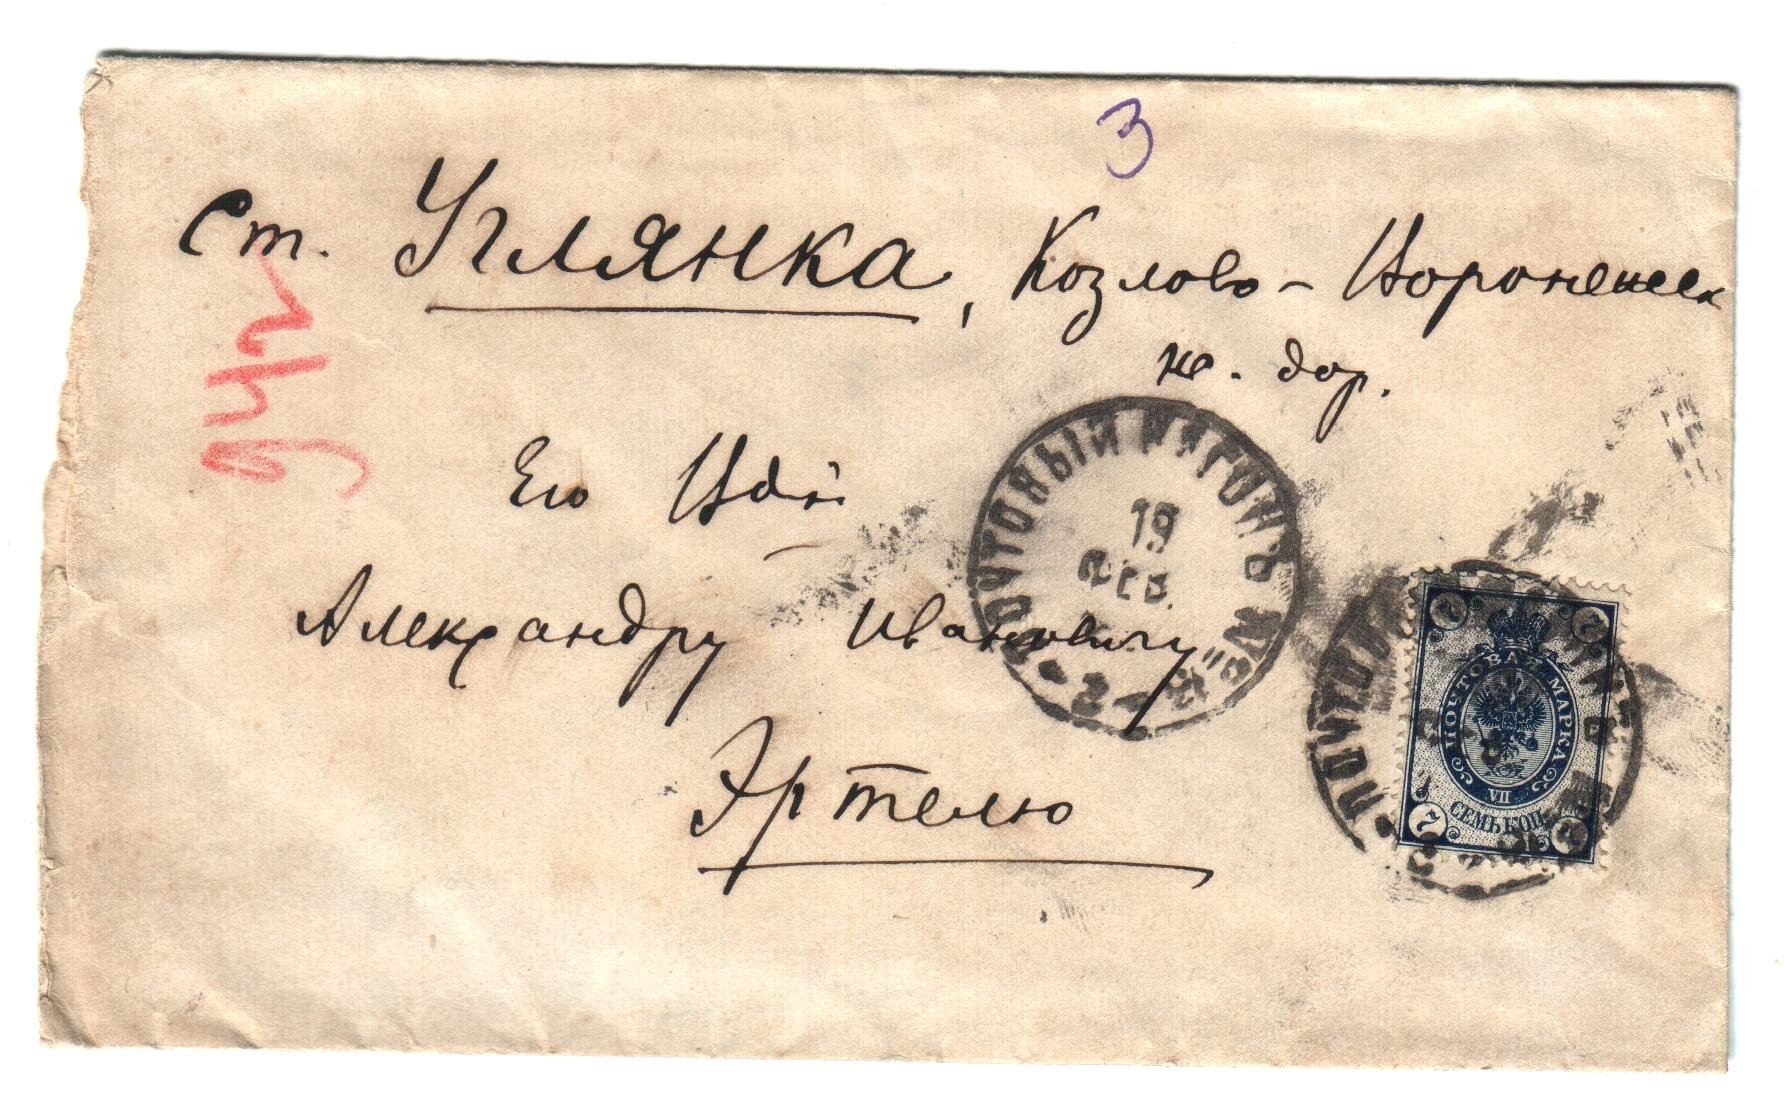 3
Ст. Углянка, Козлово-Воронежск
ж. дор.
942
Его Вбл
Александру Ивановичу
Эртелю
ПОЧТОВЫЙ ВАГОНЪ №
19
ФЕВ.
2
ПОЧТОВАЯ МАРКА
VII
СЕМЬ КОП.
7 7 7 7